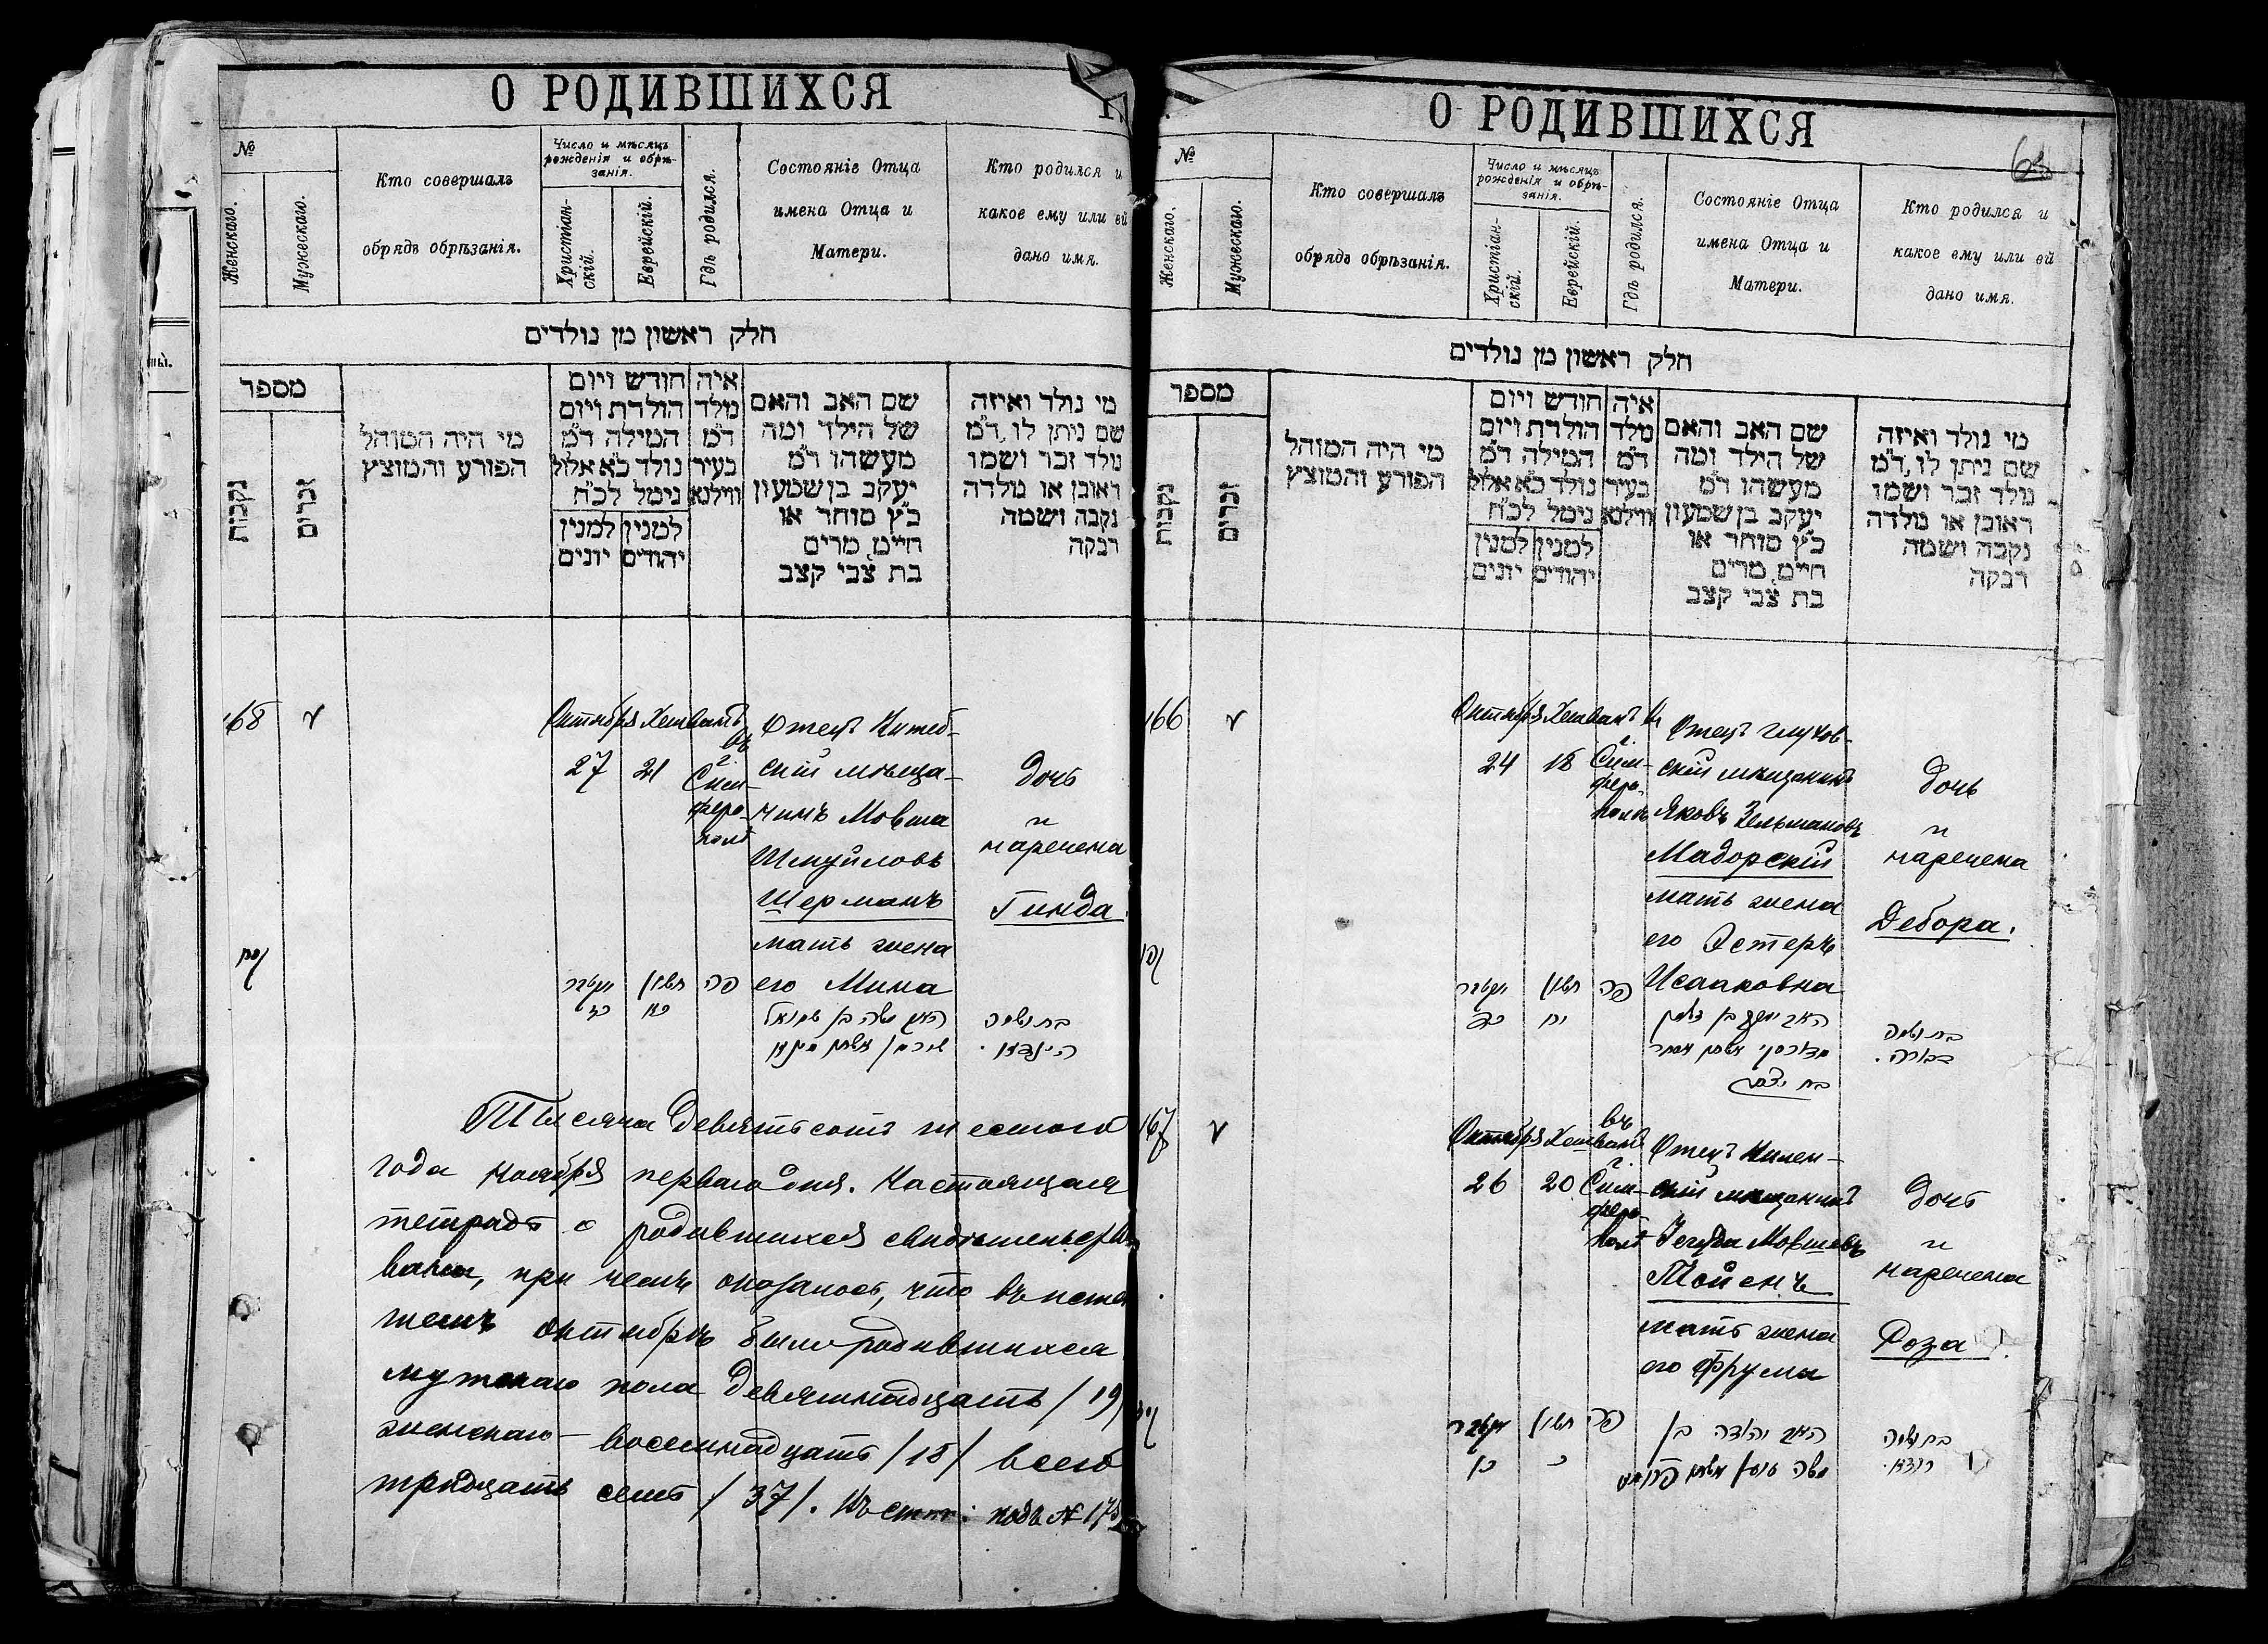 О РОДИВШИХСЯ
№
Женскаго.
Мужескаго.
Кто совершалъ
обрядъ обрѣзанія.
Число и мѣсяцъ
рожденія и обрѣ-
занія.
Христіан-
скій.
Еврейскій.
Гдѣ родился.
Состояніе Отца
имена Отца и
Матери.
Кто родился и
какое ему или ей
дано имя.
חלק ראשון מן נולדים
מספר
נקבות
זכרים
מי היה המוהל
הפורע והמוצץ
חודש ויום
הולדת ויום
המילה ד״מ
נולד כ״א אלול
נימל לכ״ח
למנין למנין
יהודים יונים
איה
נולד
ד״מ
בעיר
ווילנא
שם האב והאם
של הילד ומה
מעשהו ד״מ
יעקב בן שמעון
כ״ץ סוחר או
חייט, מרים
בת צבי קצב
מי נולד ואיזה
שם ניתן לו, ד״מ
נולד זכר ושמו
ראובן או נולדה
נקבה ושמה
רבקה
168
Октября Хешванъ
27 21
въ
г.
Сим-
феро-
полѣ
Отецъ Витеб-
скій мѣща-
нинъ Мовша
Шмуйловъ
Шерманъ
мать жена
его Мина
дочь
и
наречена
Гинда.
פה
האב משה בן שמואל
שערמאן
הינדא.
Тысяча девятьсотъ шестого
года ноября перваго дня. Настоящая
тетрадь о родившихся свидѣтельство-
вана, при чемъ оказалось, что въ
октябрѣ было родившихся
мужского пола девятнадцать /19/
женскаго — восемнадцать /18/ всего
тридцать семь /37/. подъ №
О РОДИВШИХСЯ
63
№
Женскаго.
Мужескаго.
Кто совершалъ
обрядъ обрѣзанія.
Число и мѣсяцъ
рожденія и обрѣ-
занія.
Христіан-
скій.
Еврейскій.
Гдѣ родился.
Состояніе Отца
имена Отца и
Матери.
Кто родился и
какое ему или ей
дано имя.
חלק ראשון מן נולדים
מספר
נקבות
זכרים
מי היה המוהל
הפורע והמוצץ
חודש ויום
הולדת ויום
המילה ד״מ
נולד כ״א אלול
נימל לכ״ח
למנין למנין
יהודים יונים
איה
נולד
ד״מ
בעיר
ווילנא
שם האב והאם
של הילד ומה
מעשהו ד״מ
יעקב בן שמעון
כ״ץ סוחר או
חייט, מרים
בת צבי קצב
מי נולד ואיזה
שם ניתן לו, ד״מ
נולד זכר ושמו
ראובן או נולדה
נקבה ושמה
רבקה
166
Октября Хешванъ
24 18
г.
Сим-
феро-
полѣ
Отецъ Глухов-
скій мѣщанинъ
Яковъ Зельмановъ
Мадорскій
мать жена
его Эстеръ
Исааковна
дочь
и
наречена
Дебора.
פה
האב יעקב בן זלמן
מאדורסקי
בת יצחק
דבורה.
167
Октября Хешванъ
26 20
въ
г.
Сим-
феро-
полѣ
Отецъ Вилен-
скій мѣщанинъ
Іегуда Мовшевъ
Тойенъ
мать жена
его Фрума
дочь
и
наречена
Роза.
פה
האב יהודה בן
משה
ראזא.